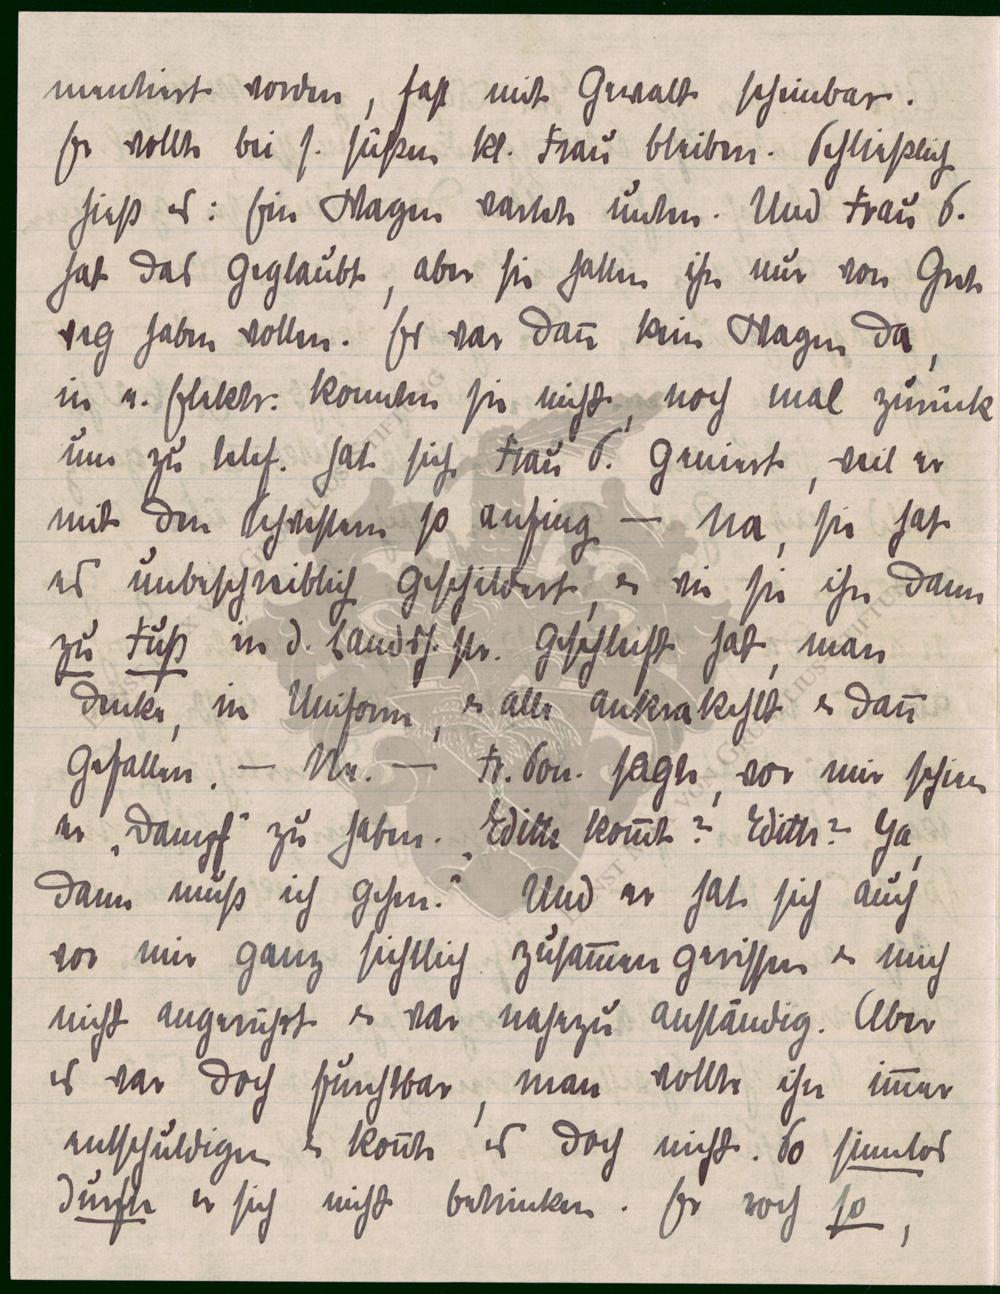 mentiert worden, fast mit Gewalt scheinbar.
Er wollte bei s. süßen kl. Frau bleiben. Schließlich
hieß es: Ein Wagen wartete unten. Und Frau S.
hat das geglaubt, aber sie hatten ihn nur von Gret
weg haben wollen. Es war dañ kein Wagen da,
in e. Elektr. konnten sie nicht, noch mal zurück
um zu telef. hat sich Frau S. geniert, weil er
mit den Schwestern so anfing — Na, sie hat
es unbeschreiblich geschildert, u wie sie ihn dann
zu Fuß in d. Landsh. str. geschleift hat, man
denke, in Uniform, u alle ankrakehlt u dañ
gefallen. — Ne. — Fr. Son. sagte, vor mir schien
er „Dampf“ zu haben. „Edith kom̄t? Edith? Ja,
dann muß ich gehen.“ Und er hat sich auch
vor mir ganz sichtlich zusam̄en gerissen u mich
nicht angerührt u war nahezu anständig. Aber
es war doch furchtbar, man wollte ihn im̄er
entschuldigen u kon̄te es doch nicht. So sinnlos
durfte er sich nicht betrinken. Er roch so,
VON GRONELLIUS STIFTUNG